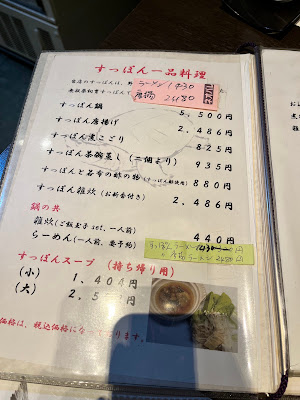 すっぽん一品料理
当店のすっぽんは、野
ラーメン 1430
鹿児島
唐揚 2480
すっぽん鍋 5,500円
すっぽん唐揚げ 2,486円
すっぽん煮こごり 825円
すっぽん茶碗蒸し(二個より) 935円
すっぽんと昆布の酢の物 880円
すっぽん雑炊(お新香付き) 2,486円
鍋の共
雑炊(ご飯玉子set,一人前) 440円
らーめん(一人前、要予約)
すっぽんラーメン 1430円
すっぽんスープ (持ち帰り用)
(小) 1,404円
(大) 2,5
価格は、税込価格にな